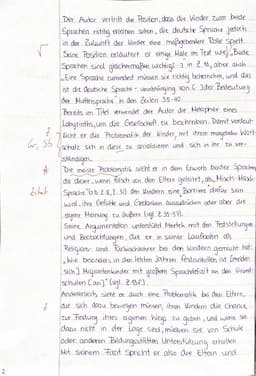 Der Autor vertritt die Position, dass die Kinder zwar beide
Sprachen richtig erlernen sollen, die deutsche Sprache jedoch
in der Zukunft der Kinder eine maßgebendere Rolle spielt.
Seine Position erläutert er einige Male im Text wie „Beide
Sprachen sind gleichermaßen wichtig" in Z. 18, aber auch
„Eine Sprache zumindest müssen sie richtig beherrschen, und das
ist die deutsche Sprache - unabhängig von der Bedeutung
der Muttersprache" in den Zeilen 38-40.
Bereits im Titel verwendet der Autor die Metapher eines
Labyrinths, um die Gesellschaft zu beschreiben. Damit verdeut-
licht er die Problematik der Kinder, mit ihrem mangelnden Wort-
schatz sich in diese zu sozialisieren und sich in ihr zu ver-
ständigen.
Gr, Sb
A
Die meiste Problematik sieht er in dem Erwerb beider Sprachen
da dieser, wenn falsch von den Eltern geleitet, als „Misch-Masch-
Zitat
Sprache" den Kindern eine Barriere dafür sein
wird, ihre Gefühle und Gedanken auszudrücken oder aber die
eigene Meinung zu äußern (vgl. Z. 35-37).
Seine Argumentation unterstützt Mertek mit den Feststellungen
und Beobachtungen, die er in seiner Laufbahn als
Religions- und Türkischlehrer bei den Kindern gemacht hat:
„Wie besonders in den letzten Jahren festzustellen ist, melden
sich Migrantenkinder mit großem Sprachdefizit an den Grund-
schulen an
Andererseits sieht er auch eine Problematik bei den Eltern,
die sich dazu bewegen müssen, ihren Kindern die Chance
zur Findung ihres eigenen Wegs zu geben, und wenn sie
dazu nicht in der Lage sind, müssen sie von Schule
oder anderen Bildungsstätten Unterstützung erhalten.
Mit seinem Fazit spricht er also die Eltern und
2